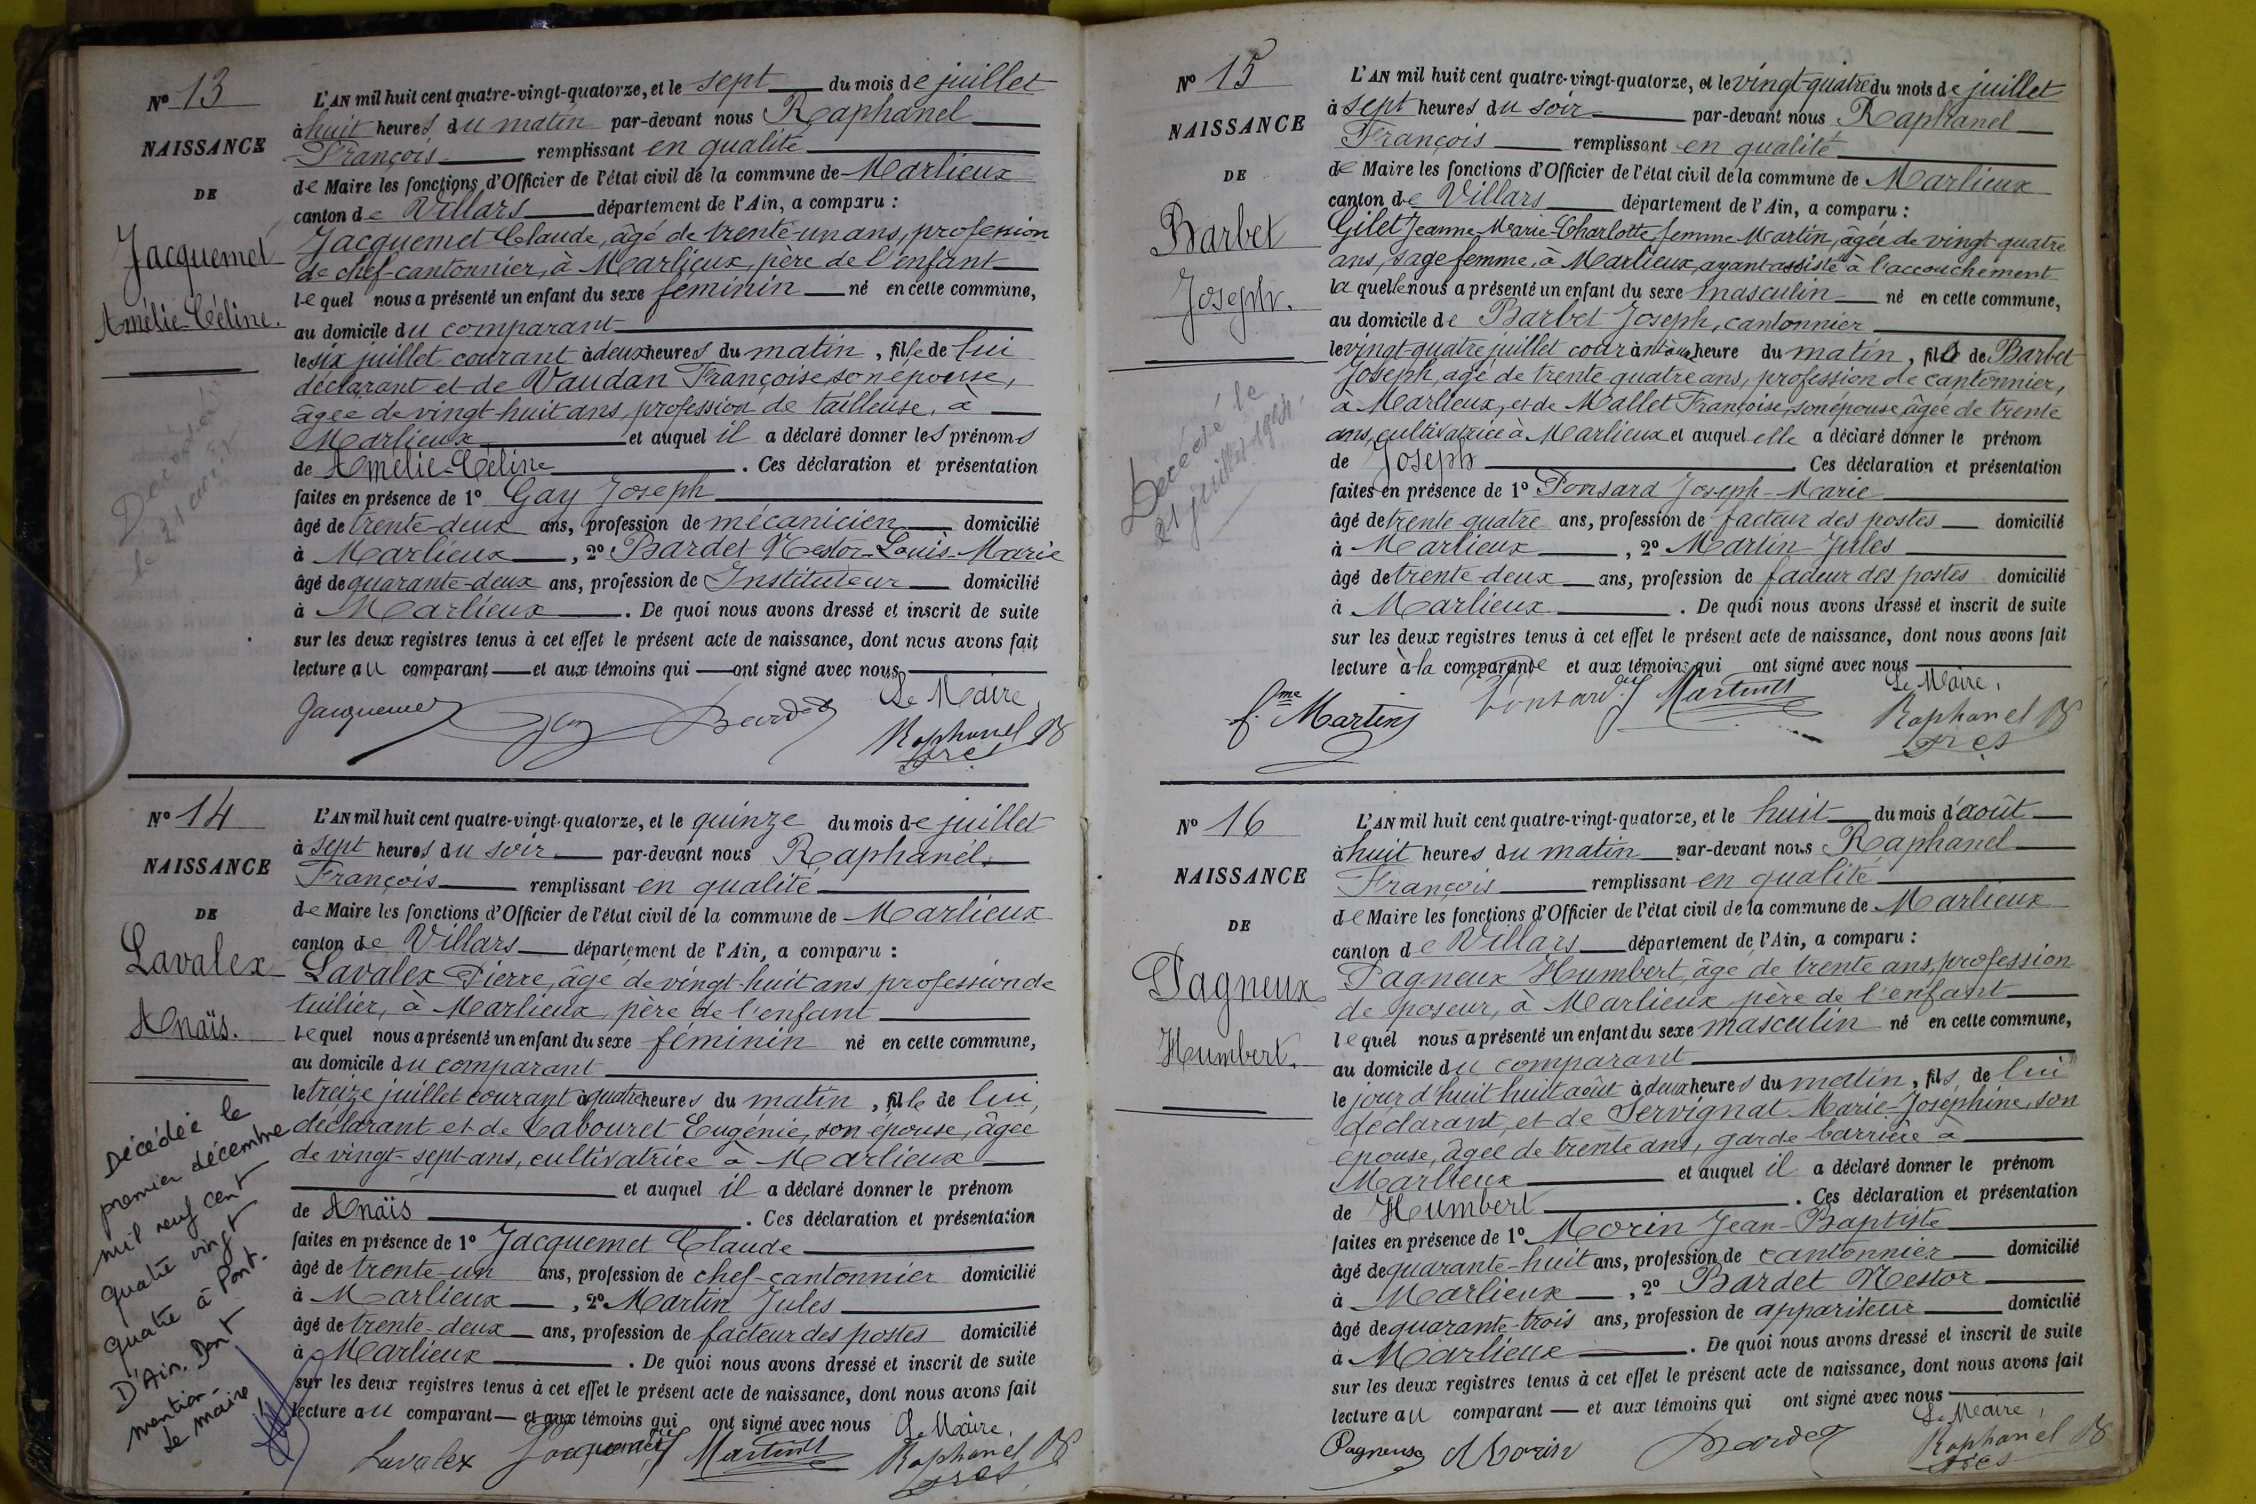 N° 13
NAISSANCE
DE
Jacquemet
Amélie-Céline.
Décédée
le 21
L'AN mil huit cent quatre-vingt-quatorze, et le sept du mois de juillet
à huit heures du matin par-devant nous Raphanel
François remplissant en qualité
de Maire les fonctions d'Officier de l'état civil de la commune de Marlieux
canton de Villars département de l'Ain, a comparu :
Jacquemet Claude, âgé de trente-un ans, profession
de chef-cantonnier, à Marlieux, père de l'enfant
lequel nous a présenté un enfant du sexe féminin né en cette commune,
au domicile du comparant
le six juillet courant à deux heures du matin, fille de lui
déclarant et de Vaudan Françoise, son épouse,
âgée de vingt-huit ans, profession de tailleuse, à
Marlieux et auquel il a déclaré donner les prénoms
de Amélie-Céline. Ces déclaration et présentation
faites en présence de 1° Gay Joseph
âgé de trente-deux ans, profession de mécanicien domicilié
à Marlieux, 2° Bardet Nestor-Louis-Marie
âgé de quarante-deux ans, profession de Instituteur domicilié
à Marlieux. De quoi nous avons dressé et inscrit de suite
sur les deux registres tenus à cet effet le présent acte de naissance, dont nous avons fait
lecture au comparant et aux témoins qui ont signé avec nous
Le Maire,
Jacquemet Gay Bardet Raphanel
N° 14
NAISSANCE
DE
Lavalex
Anaïs.
Décédée le
premier décembre
mil neuf cent
quatre vingt
quatre à Pont-
D'Ain. Dont
mention-
Le maire
L'AN mil huit cent quatre-vingt-quatorze, et le quinze du mois de juillet
à sept heures du soir par-devant nous Raphanel
François remplissant en qualité
de Maire les fonctions d'Officier de l'état civil de la commune de Marlieux
canton de Villars département de l'Ain, a comparu :
Lavalex Pierre, âgé de vingt-huit ans, profession de
tuilier, à Marlieux, père de l'enfant
lequel nous a présenté un enfant du sexe féminin né en cette commune,
au domicile du comparant
le treize juillet courant à quatre heures du matin, fille de lui,
déclarant et de Cabouret Eugénie, son épouse, âgée
de vingt-sept ans, cultivatrice à Marlieux
et auquel il a déclaré donner le prénom
de Anaïs. Ces déclaration et présentation
faites en présence de 1° Jacquemet Claude
âgé de trente-un ans, profession de chef-cantonnier domicilié
à Marlieux, 2° Martin Jules
âgé de trente-deux ans, profession de facteur des postes domicilié
à Marlieux. De quoi nous avons dressé et inscrit de suite
sur les deux registres tenus à cet effet le présent acte de naissance, dont nous avons fait
lecture au comparant et aux témoins qui ont signé avec nous Le Maire,
Lavalex Jacquemet Martin Raphanel
N° 15
NAISSANCE
DE
Barbet
Joseph.
Décédé le
21 juillet 1964.
L'AN mil huit cent quatre-vingt-quatorze, et le vingt-quatre du mois de juillet
à sept heures du soir par-devant nous Raphanel
François remplissant en qualité
de Maire les fonctions d'Officier de l'état civil de la commune de Marlieux
canton de Villars département de l'Ain, a comparu :
Gilet Jeanne-Marie-Charlotte, femme Martin, âgée de vingt-quatre
ans, sage femme, à Marlieux, ayant assisté à l'accouchement
laquelle nous a présenté un enfant du sexe masculin né en cette commune,
au domicile de Barbet Joseph, cantonnier
le vingt-quatre juillet courant à une heure du matin, fils de Barbet
Joseph, âgé de trente quatre ans, profession de cantonnier,
à Marlieux, et de Mallet Françoise, son épouse, âgée de trente
ans, cultivatrice à Marlieux et auquel elle a déclaré donner le prénom
de Joseph Ces déclaration et présentation
faites en présence de 1° Ponsard Joseph-Marie
âgé de trente-quatre ans, profession de facteur des postes domicilié
à Marlieux, 2° Martin Jules
âgé de trente-deux ans, profession de facteur des postes domicilié
à Marlieux. De quoi nous avons dressé et inscrit de suite
sur les deux registres tenus à cet effet le présent acte de naissance, dont nous avons fait
lecture à la comparante et aux témoins qui ont signé avec nous
Le Maire,
fme Martin Ponsard Martin Raphanel
N° 16
NAISSANCE
DE
Pagneux
Humbert.
L'AN mil huit cent quatre-vingt-quatorze, et le huit du mois d'août
à huit heures du matin par-devant nous Raphanel
François remplissant en qualité
de Maire les fonctions d'Officier de l'état civil de la commune de Marlieux
canton de Villars département de l'Ain, a comparu :
Pagneux Humbert, âgé de trente ans, profession
de poseur, à Marlieux, père de l'enfant
lequel nous a présenté un enfant du sexe masculin né en cette commune,
au domicile du comparant
le jour d'huit huit août à deux heures du matin, fils de lui
déclarant, et de Servignat Marie-Joséphine, son
épouse, âgée de trente ans, garde-barrière à
Marlieux et auquel il a déclaré donner le prénom
de Humbert. Ces déclaration et présentation
faites en présence de 1° Morin Jean-Baptiste
âgé de quarante-huit ans, profession de cantonnier domicilié
à Marlieux, 2° Bardet Nestor
âgé de quarante-trois ans, profession de appariteur domicilié
à Marlieux. De quoi nous avons dressé et inscrit de suite
sur les deux registres tenus à cet effet le présent acte de naissance, dont nous avons fait
lecture au comparant et aux témoins qui ont signé avec nous
Le Maire,
Pagneux Morin Bardet Raphanel